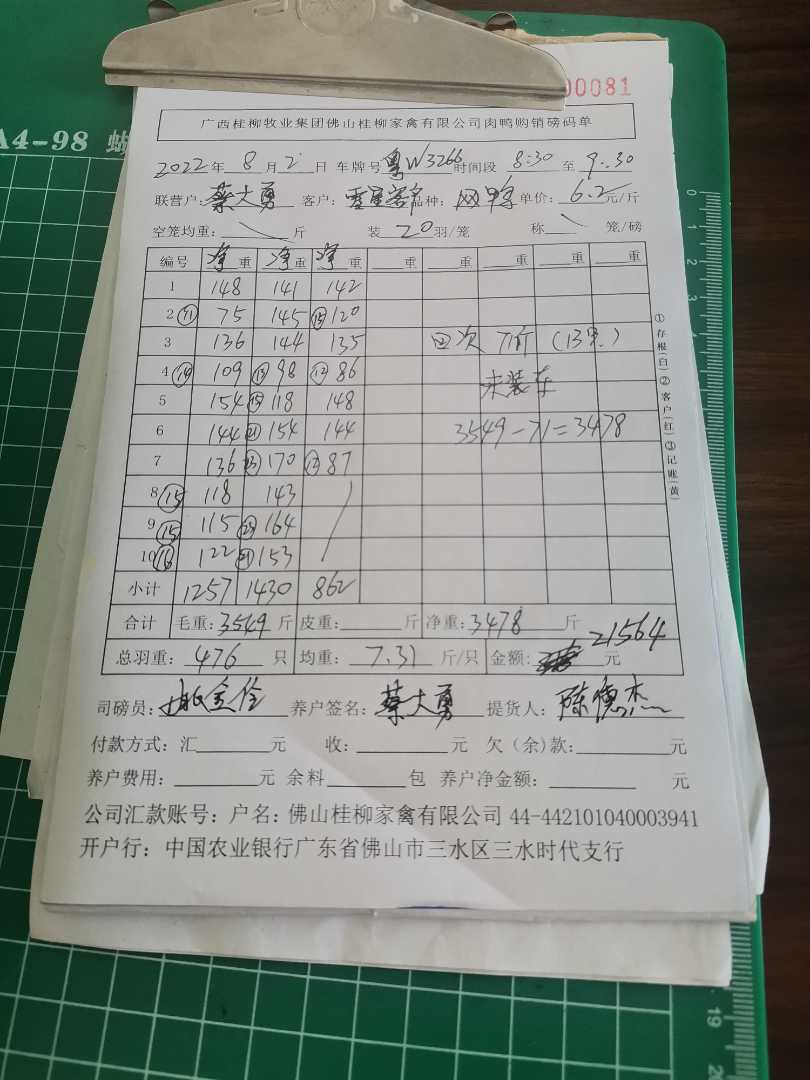 00081
A4-98
广西桂柳牧业集团佛山桂柳家禽有限公司肉鸭购销磅码单
2022年 8月2日 车牌号粤W3266时间段 8:30 至 9:30
联营户:蔡大勇 客户: 品种: 单价: 6.2元/斤
空笼均重: 斤 装 20羽/笼 称 笼/磅
编号 净重 净重 净重 重 重 重 重 重
1 148 141 142
2 75 145 120
3 136 144 135 回次 71斤 (13只)
4 109 98 86 未装车
5 154 118 148
6 144 154 144 3549-71=3478
7 136 170 87
8 ⑮ 118 143
9 ⑮ 115 164
10 ⑯ 122 ㉑ 153
小计 1257 1430 862
合计 毛重:3549斤 皮重: 斤 净重:3478 斤
总羽重: 476 只 均重: 7.31 斤/只 金额: 21564 元
司磅员: 养户签名: 蔡大勇 提货人: 陈德杰
付款方式:汇 元 收: 元 欠(余)款: 元
养户费用: 元 余料 包 养户净金额: 元
公司汇款账号:户名:佛山桂柳家禽有限公司 44-442101040003941
开户行:中国农业银行广东省佛山市三水区三水时代支行
①存根(白)②客户(红)③记账(黄)
0
19
20